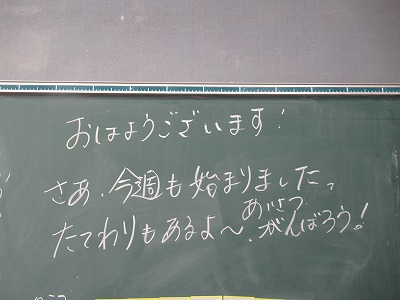 おはようございます!
さあ、今週も始まりました。
たてわりもあるよ〜、あいさつがんばろう!